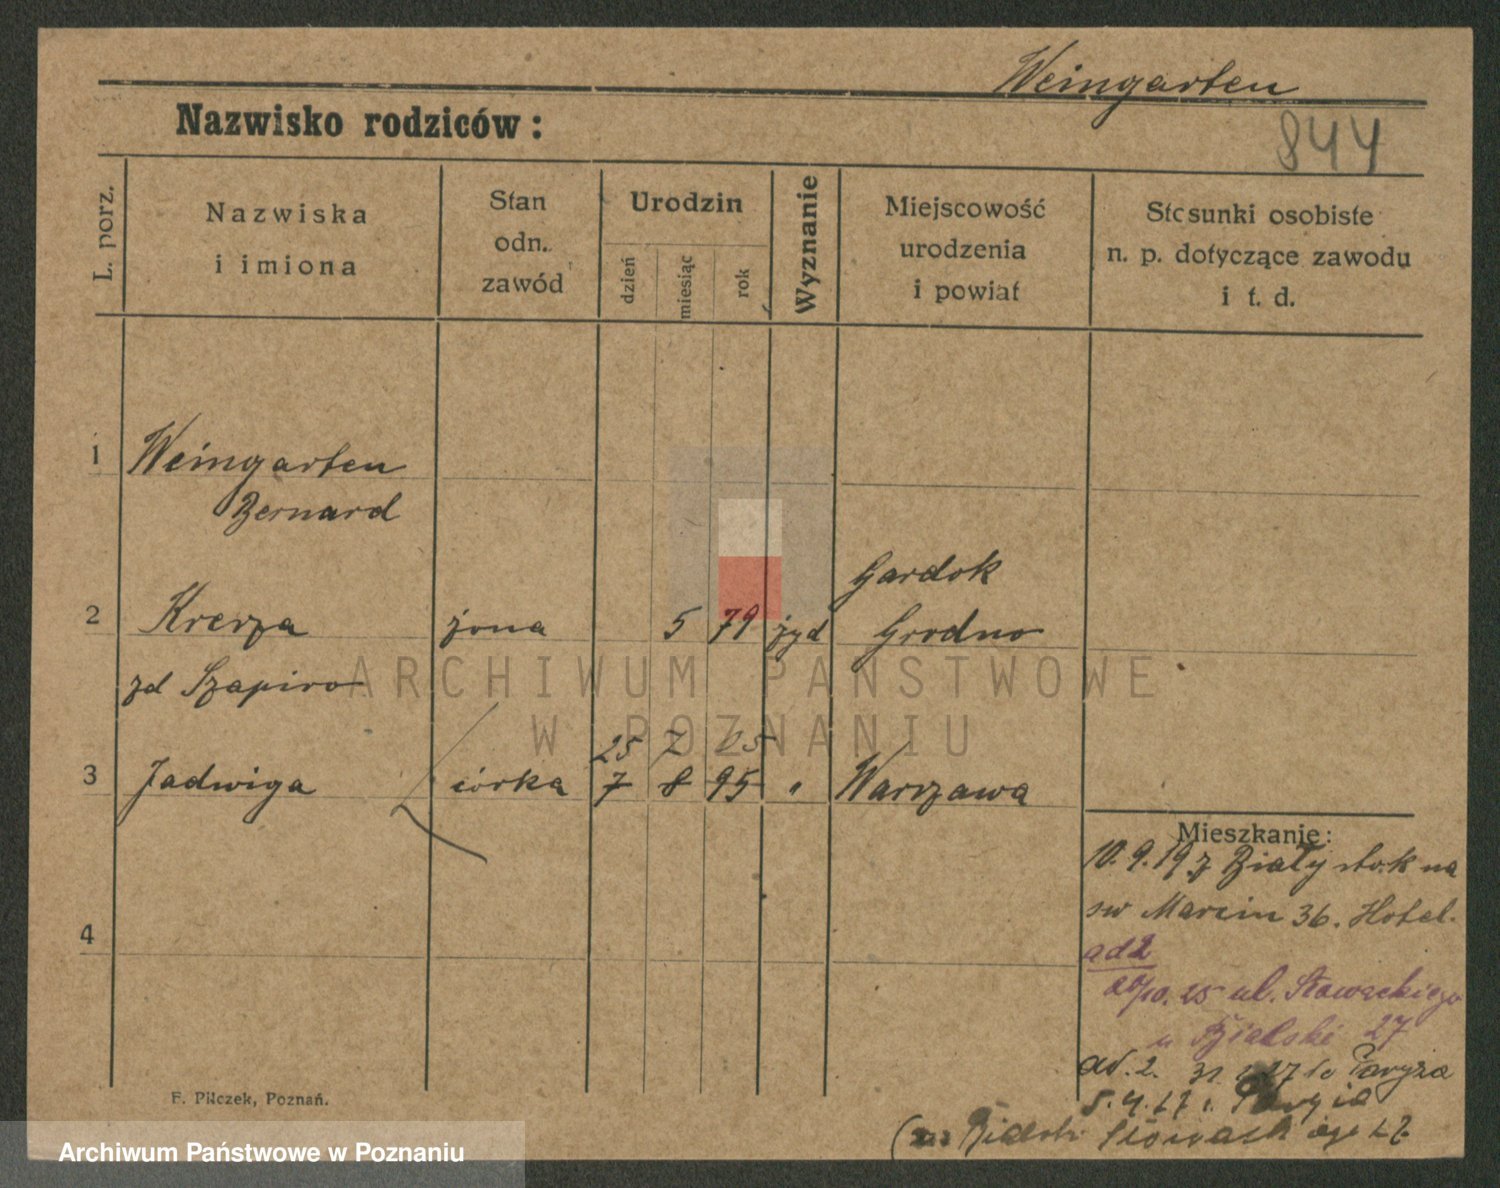 Weingarten
Nazwisko rodziców:
844
L. porz.
Nazwiska
i imiona
Stan
odn.
zawód
Urodzin
dzień
miesiąc
rok
Wyznanie
Miejscowość
urodzenia
i powiat
Stosunki osobiste
n. p. dotyczące zawodu
i t. d.
1 Weingarten
Bernard
Gardok
2 żona 5 79 żyd Grodno
zd Szapiro
25 7 05
3 Jadwiga córka 7 8 95 " Warszawa
Mieszkanie:
10.9.19 z Białystok na
św Marcin 36. Hotel.
4
ad 2
10. 25 ul. Słowackiego
u Bielski 27
ad. 2. 31 27 Paryża
5.4.27
F. Pilczek, Poznań.
ARCHIWUM PAŃSTWOWE
W POZNANIU
Archiwum Państwowe w Poznaniu